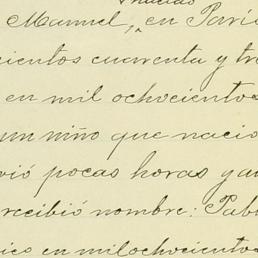 Manuel, en Paris
cientos cuarenta y tr
en mil ochocientos
un niño que nacio
vió pocas horas y au
recibió nombre: Pab
en mil ochocientos